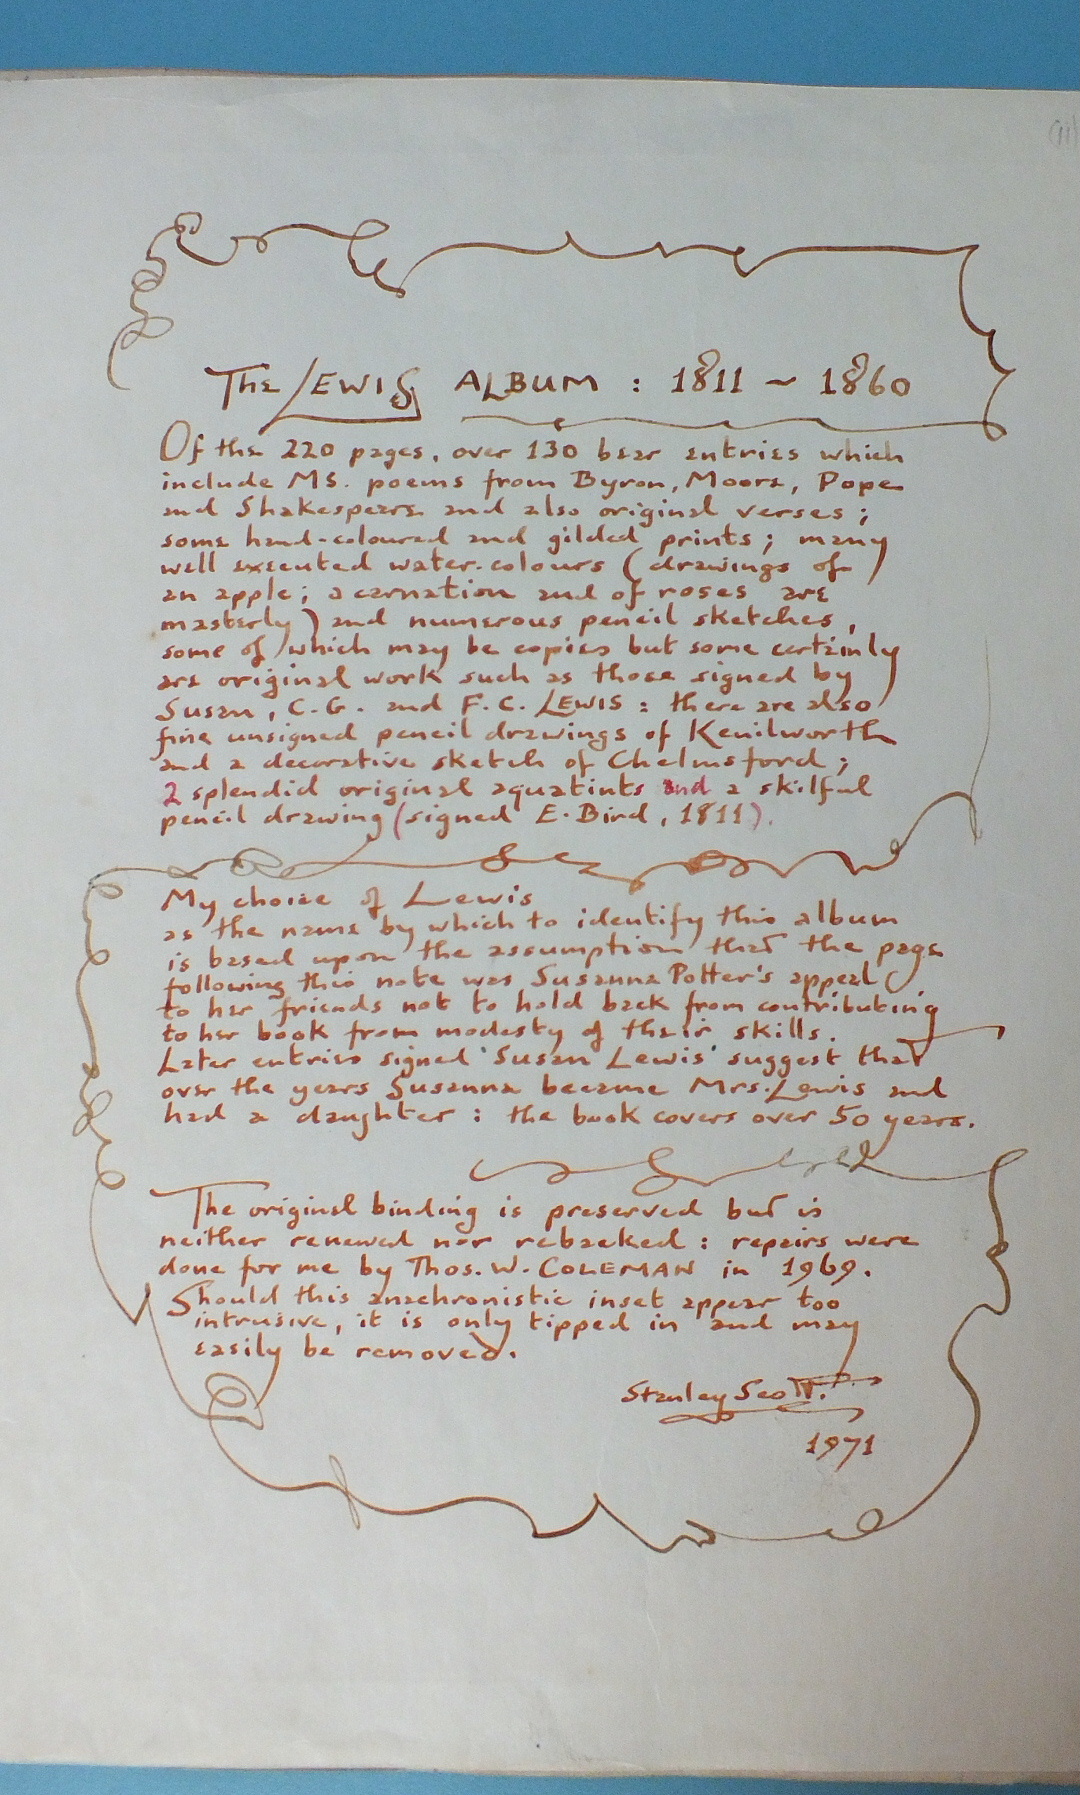 The LEWIS ALBUM : 1811 ~ 1860
Of the 220 pages, over 130 bear entries which
include MS. poems from Byron, Moore, Pope
and Shakespeare and also original verses ;
some hand-coloured and gilded prints ; many
well executed water-colours ( drawings of
an apple ; a carnation and of roses are
masterly ) and numerous pencil sketches ,
some of which may be copies but some certainly
are original work such as those signed by
Susan , C.G. and F.C. LEWIS : there are also
fine unsigned pencil drawings of Kenilworth
and a decorative sketch of Chelmsford ;
2 splendid original aquatints and a skilful
pencil drawing (signed E. Bird , 1811).
My choice of Lewis
as the name by which to identify this album
is based upon the assumption that the page
following this note was Susanna Potter's appeal
to her friends not to hold back from contributing
to her book from modesty of their skills.
Later entries signed 'Susan Lewis' suggest that
over the years Susanna became Mrs. Lewis and
had a daughter : the book covers over 50 years.
The original binding is preserved but is
neither renewed nor rebacked : repairs were
done for me by Thos. W. COLEMAN in 1969.
Should this anachronistic inset appear too
intrusive, it is only tipped in and may
easily be removed.
Stanley Scott.
1971